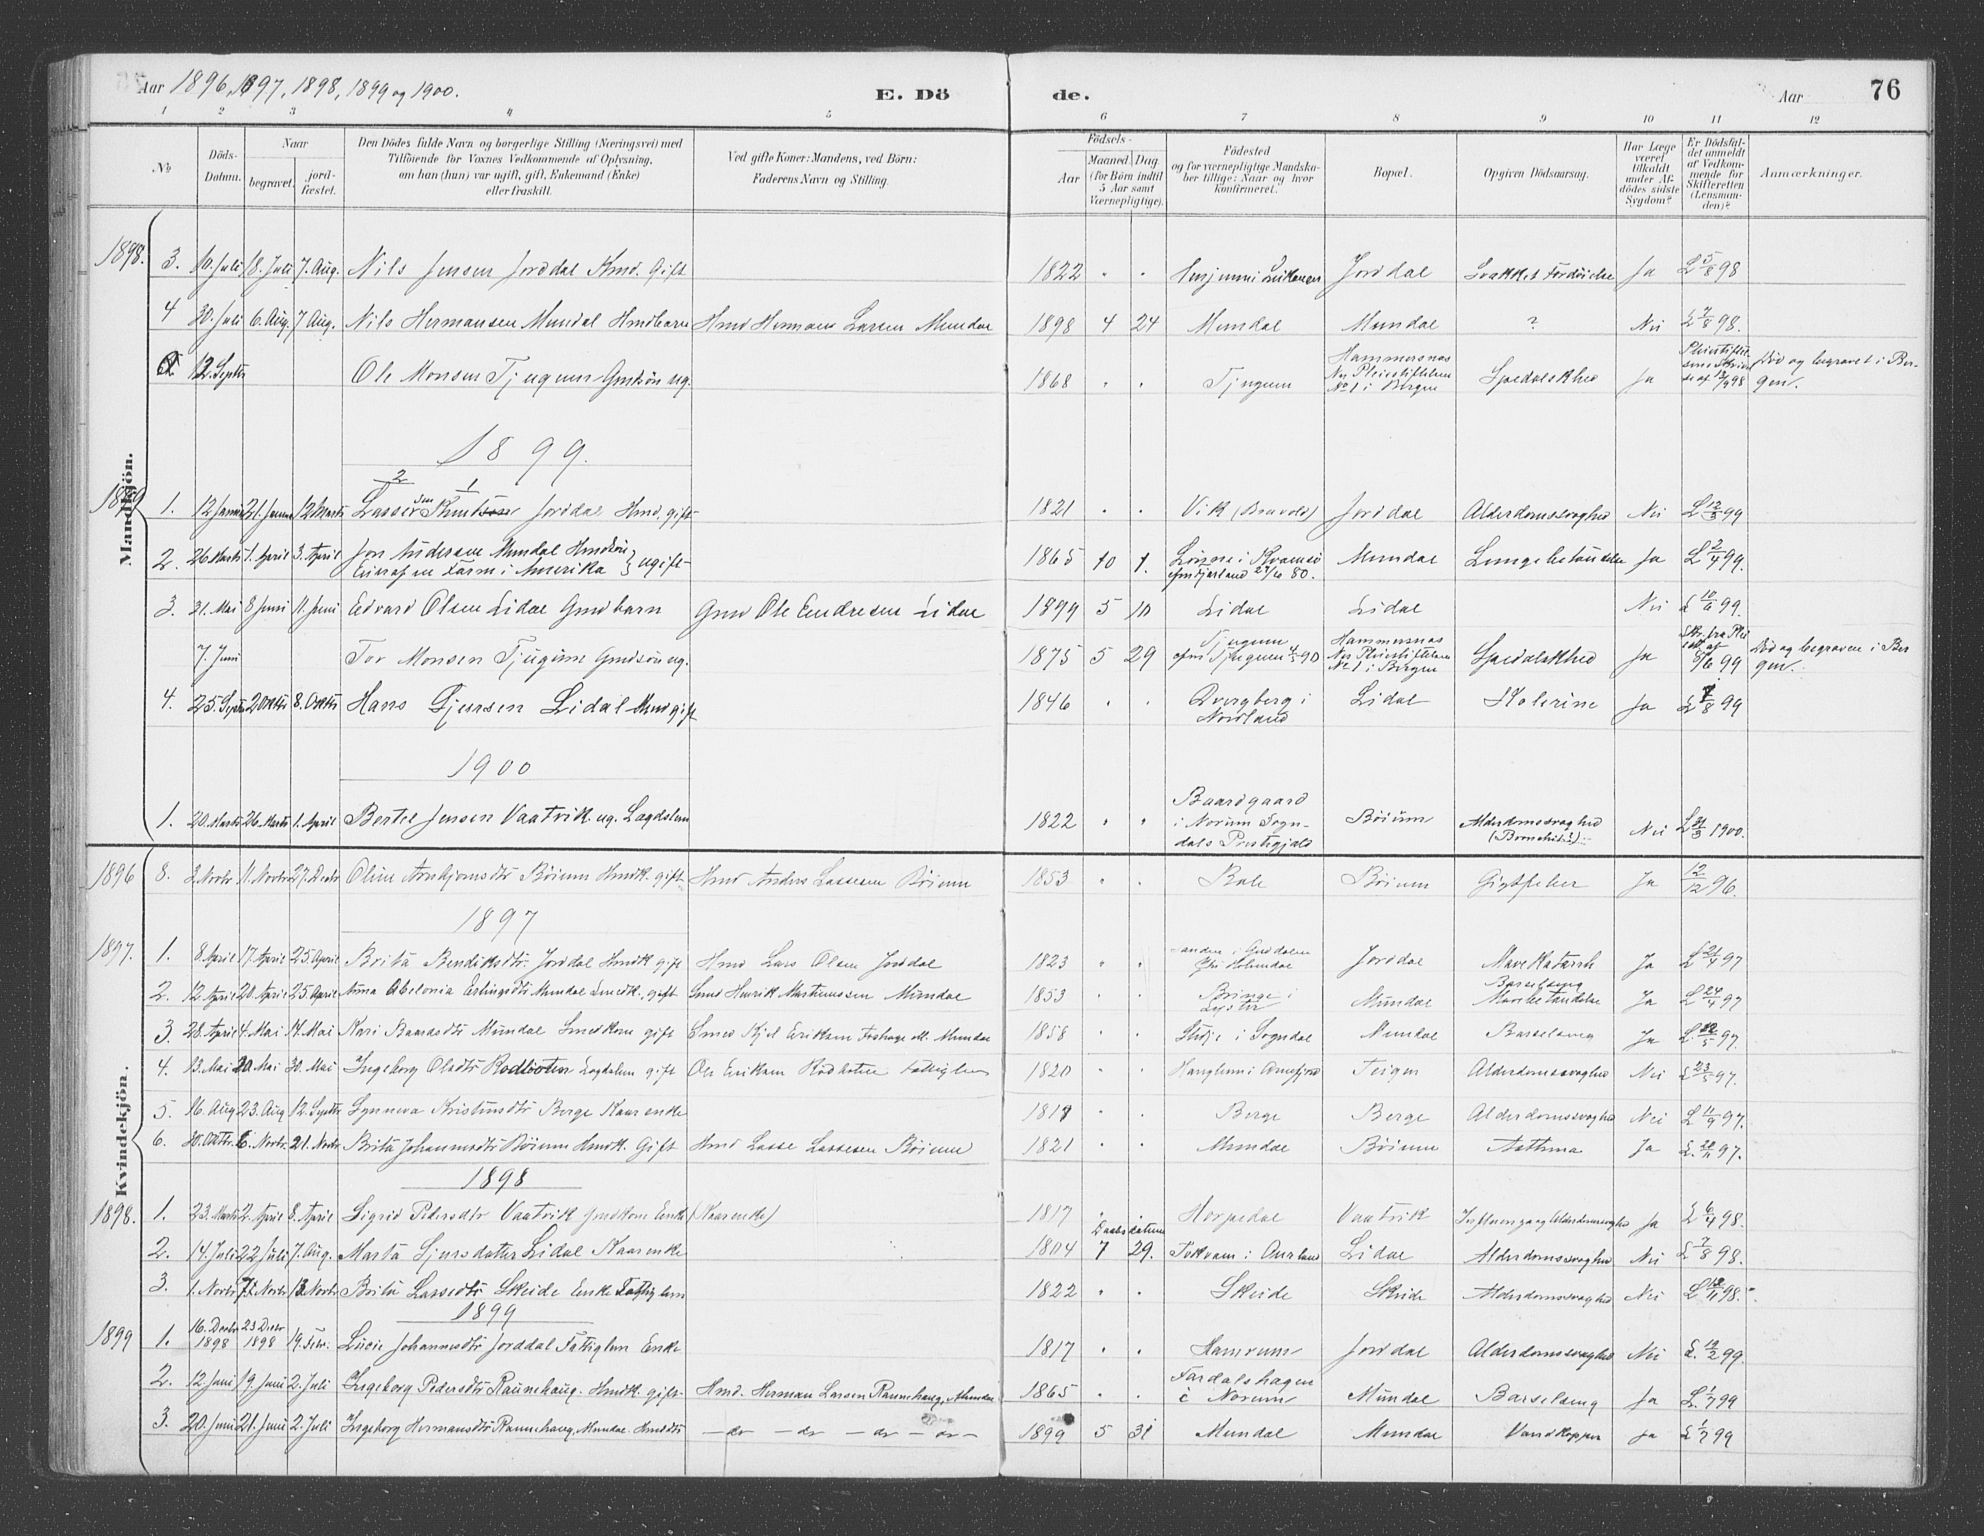 Aar 1896, 1897, 1898, 1899 og 1900.
E. Döde.
Aar
76
1 2 3 4 5 6 7 8 9 10 11 12
№
Döds-Datum.
Naar
begravet.
jordfæstet.
Den Dödes fulde Navn og borgerlige Stilling (Næringsvei) med
Tilföiende for Voxnes Vedkommende af Oplysning,
om han (hun) var ugift, gift, Enkemand (Enke)
eller fraskilt.
Ved gifte Koner: Mandens, ved Börn:
Faderens Navn og Stilling.
Födsels-
Aar
Maaned. Dag
(for Börn indtil
5 Aar samt
Værnepligtige).
Födested
og for værnepligtige Mandska-
ber tillige: Naar og hvor
konfirmeret.
Bopæl.
Opgiven Dödsaarsag.
Har Læge
været
tilkaldt
under Af-
dödes sidste
Sygdom?
Er Dödsfal-
det anmeldt
af Vedkom-
mende for
Skifteretten
(Lensman-
den)?
Anmærkninger.
Mandkjön.
1898. 3. 16. Juli 18. Juli 7. Aug. Nils Jensen Jordal Kmd. Gift 1822 " " Jordal Svækket Fordøielse Ja L 5/8 98
4 30. Juli 6. Aug. 7 Aug. Nils Hermansen Mundal Hmdbarn Hmd Herman Larsen Mundal 1898 4 24 Mundal Mundal ? Nei L 7/8 98.
12. Septbr Ole Monsen Tjugum Gmdsøn ug. 1868 " " Tjugum Hammersnæs
Nye Pleiestiftelsen
No 1 i Bergen Spedalskhed Ja Død og begravet i Ber-
gen.
1899.
1899 1. 12 Januar 21. Januar 12 Marts Lasse Knutsen Jordal Hmd. gift 1821 " " Vik Jordal Alderdomssvaghed Nei L 12/3 99
2. 26 Marts 1. April 3. April Jon Andersen Mundal Hmdsøn
Eier af en Farm i Amerika } ugift 1865 10 1. Mundal Lungebetændelse Ja L 2/4 99.
3. 31. Mai 8 Juni 11. Juni Edvard Olsen Lidal Gmdbarn Gmd Ole Endresen Lidal 1899 5 10 Lidal Lidal Nei L 10/6 99.
7. Juni Tor Monsen Tjugum Gmdsøn ug. 1875 5 29 Tjugum
Tjugum 4/5 90 Hammersnæs
Nye Pleiestiftelsen
No 1 i Bergen Spedalskhed Ja 99 Død og begraven i Ber
gen.
4. 25. Septbr 2 Octbr 8. Octbr Hans Gjersen Lidal Hmd gift 1846 " " Dvergberg i
Nordland Lidal Kolerine Ja 99
1900
1. 20. Marts 26. Marts 1. April Bertel Jensen Vaatvik ug. Lægdslem 1822 " " Baardgaard
i Norum Sogn-
dals Prestegjæld Bøium Alderdomssvaghed Nei L 31/3 1900.
Kvindekjön.
1896 8. 2. Novbr 11. Novbr 27. Decbr Oline Arnbjørnsdtr Bøium Hmdk. gift Hmd Anders Lassesen Bøium 1853 " " Bale Bøium Gigtfeber Ja 12/12 96.
1897
1897. 1. 8. April 17. April 25. April Brita Bendiksdtr. Jordal Hmdk gift Hmd Lars Olsen Jordal 1823 " " Jordal Mavekatarrh Ja L 21/4 97
2. 12. April 20. April 25. April Anna Abelonia Erlingsdtr Mundal Smedk. gift Smed Henrik Martinussen Mundal 1853 " " Bringe i
Lyster Mundal Barselseng
Mavebetændelse Ja L 24/4 97
3. 28. April 4. Mai 14. Mai Kari Baardsdtr Mundal Smedkone gift Smed Kjel Eriksen Mundal 1858 " " Stedje i Sogndal Mundal Barselseng Ja L 97.
4. 13. Mai 20. Mai 30. Mai Ingeborg Olsdtr Rødbotten Lægdslem gift Ole Eriksen Rødbotten Fattiglem 1820 " " Teigen Alderdomssvaghed Nei L 23/5 97.
5. 16. Aug 23. Aug 12. Septbr Synneva Kristensdtr Berge Kaarenke 1817 " " Berge Berge Alderdomssvaghed Nei L 11/9 97.
6. 30. Oktbr. 6. Novbr. 21. Novbr Brita Johannesdtr Bøium Hmdk. Gift Hmd Lasse Lassesen Bøium 1821 " " Mundal Bøium Asthma Ja L. 20/11 97.
1898
1898. 1. 23. Marts 2. April 8. April Sigrid Pedersdtr Vaatvik Enke (Kaarenke) 1817 " " Vaatvik Influenza og Alderdomssvaghed Ja L 6/4 98.
2. 14. Juli 22 Juli 7. Aug. Marta Sjursdatter Lidal Kaarenke 1804 Daabsdatum
7 29. Aurland Lidal Alderdomssvaghed Nei L 7/8 98.
3. 1. Novbr 7. Novbr 13. Novbr Brita Lassedtr Skeide Enke Fattiglem 1822 " " Skeide Skeide Alderdomssvaghed Nei L 98.
1899
1899 1. 16. Decbr 1898 23 Decbr 1898 19. Febr. Lucie Johannesdtr Jorddal Fattiglem Enke 1817 " " Hamrum Jordal Alderdomssvaghed Nei L. 12/2 99.
2. 12 Juni 19. Juni 2. Juli Ingeborg Pedersdtr Raunehaug. Hmdk gift. Hmd. Herman Larsen Raunehaug, Mundal 1865 " " Fardalshagen
i Norum Mundal Barselseng Ja L. 1/7 99
3. 20. Juni 21. Juni 2. Juli Ingeborg Hermansdtr Raunehaug, Mundal. Hmdsdtr — dr — dr — dr — dr — 1899 5 31 Mundal Mundal Vandkopper Ja L 1/7 99